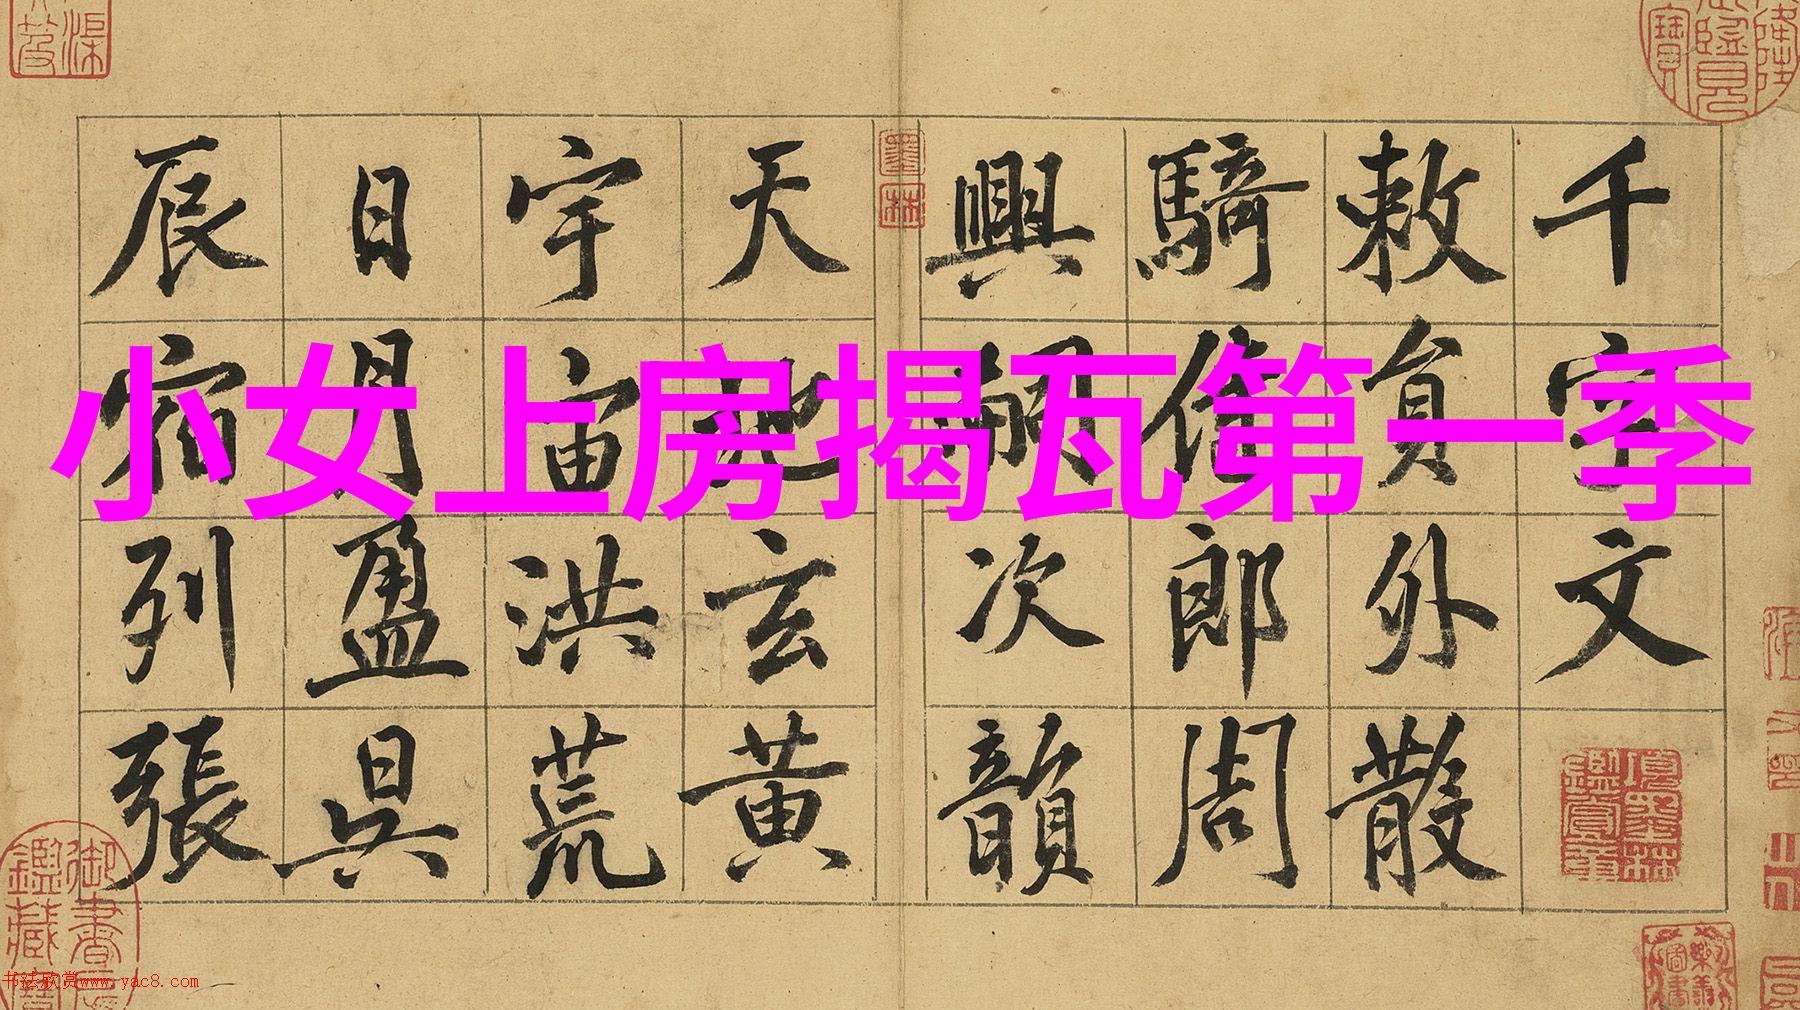 小女上房揭瓦第一季
千字文
敕員外散
騎侍郎周
興嗣次韻
天地玄黃
宇宙洪荒
日月盈昃
辰宿列張
墨林
項墨林鑑賞章
书法欣赏www.yac8.com